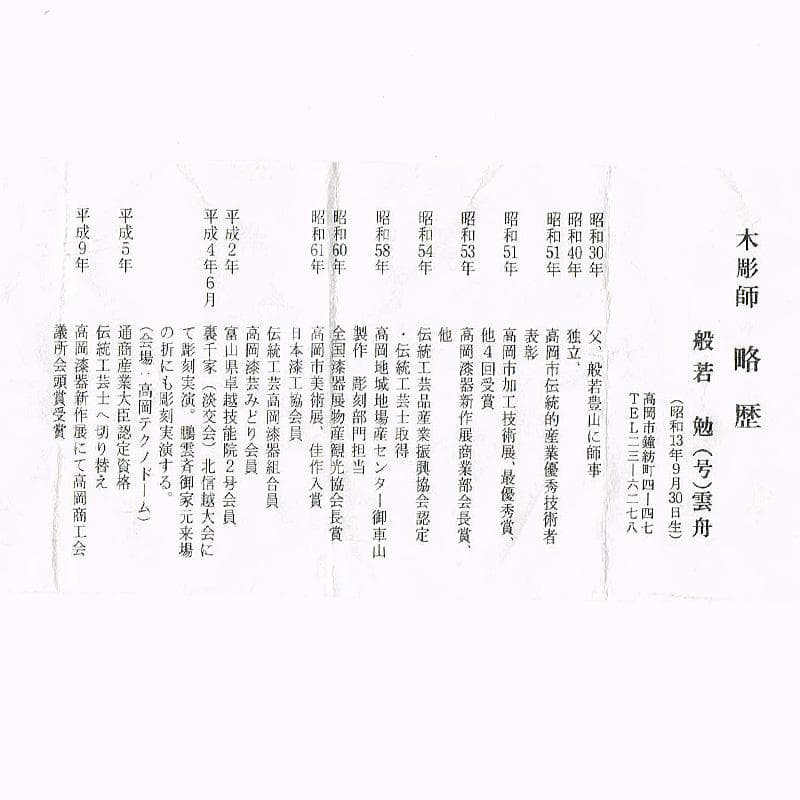 木彫師 略歴
般若 勉(号)雲舟
(昭和13年9月30日生)
高岡市鐘紡町四ー四七
TEL二三ー六二七八
昭和30年 父、般若豊山に師事
昭和40年 独立、
昭和51年 高岡市伝統的産業優秀技術者
表彰
昭和51年 高岡市加工技術展、最優秀賞、
他4回受賞
昭和53年 高岡漆器新作展商業部会長賞、
他
昭和54年 伝統工芸品産業振興協会認定
・伝統工芸士取得
昭和58年 高岡地域地場産センター御車山
製作 彫刻部門担当
昭和60年 全国漆器展物産観光協会長賞
昭和61年 高岡市美術展、佳作入賞
日本漆工協会員
伝統工芸高岡漆器組合員
高岡漆芸みどり会員
平成2年 富山県卓越技能院2号会員
平成4年6月 裏千家(淡交会)北信越大会に
て彫刻実演。鵬雲斉御家元来場
の折にも彫刻実演する。
(会場:高岡テクノドーム)
平成5年 通商産業大臣認定資格
伝統工芸士へ切り替え
平成9年 高岡漆器新作展にて高岡商工会
議所会頭賞受賞